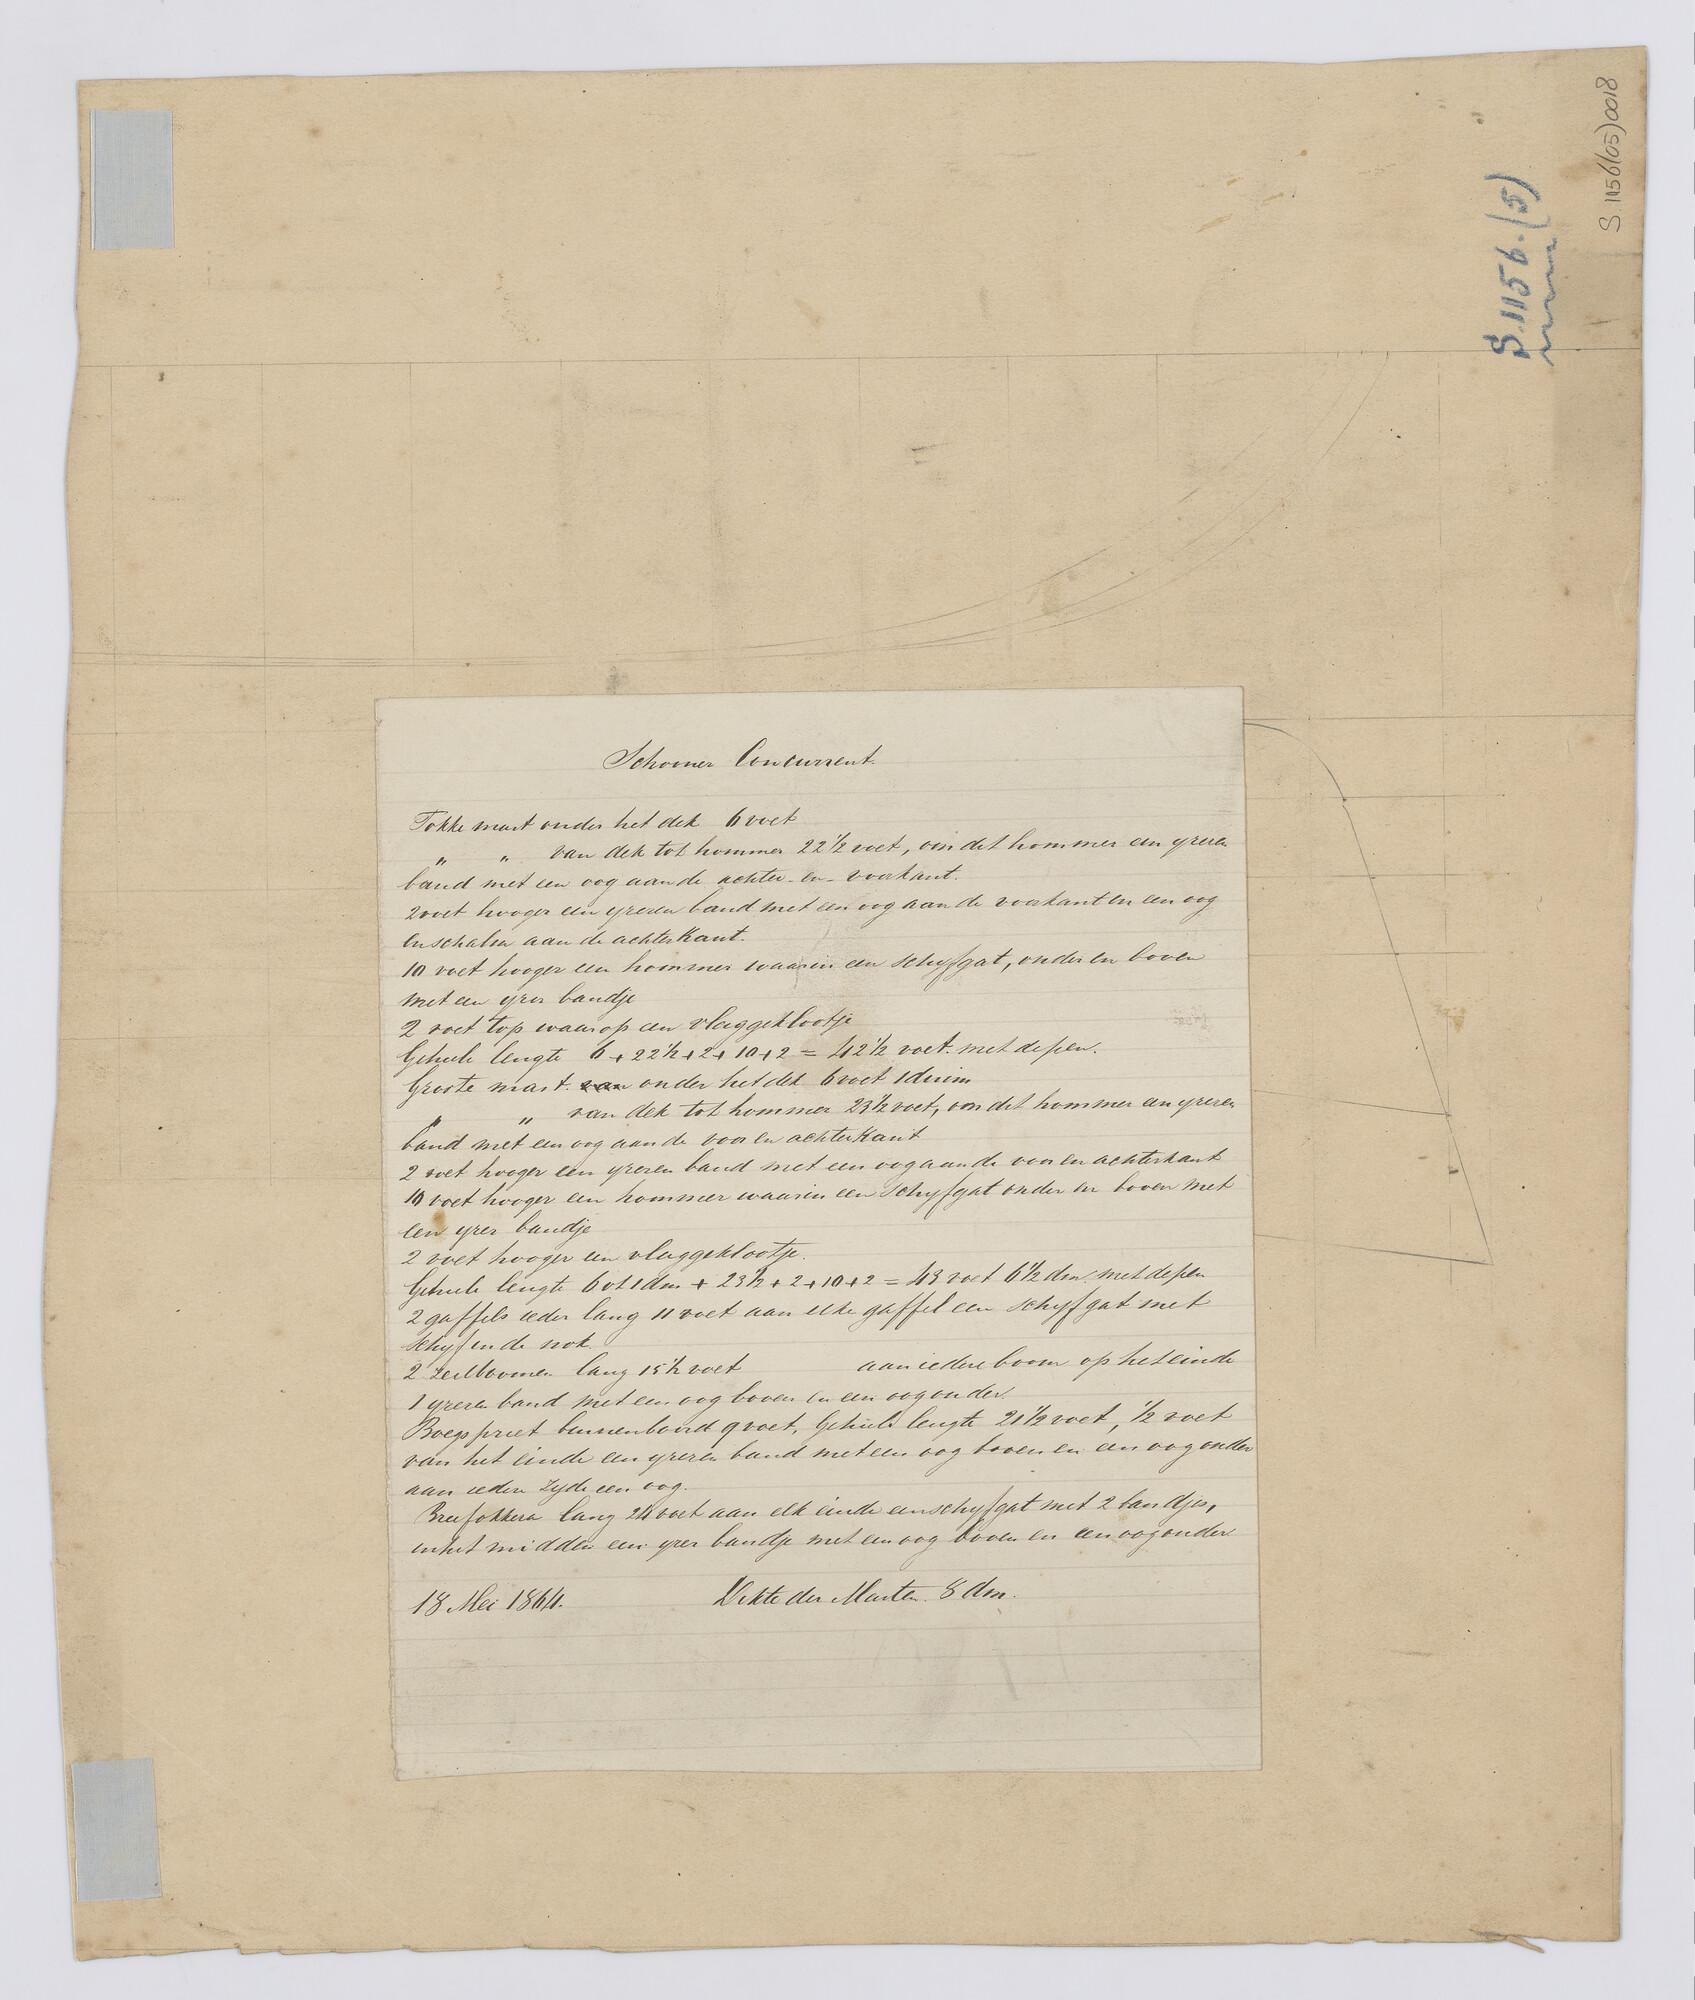 S 1156(05)0018
S.1156.(5)
Schooner Concurrent.
Fokke mast onder het dek 6 voet
" " van dek tot hommer 22 1/2 voet, om dit hommer een yzeren
band met een oog aan de achter- en- voorkant.
2 voet hooger een yzeren band met een oog aan de voorkant en een oog
en schalm aan de achterkant.
10 voet hooger een hommer waarin een schyfgat, onder en boven
met een yzer bandje
2 voet top waarop een vlaggeklootje
Geheele lengte 6 + 22 1/2 + 2 + 10 + 2 = 42 1/2 voet. met de pen.
Groote mast. van onder het dek 6 voet 1 duim
" " van dek tot hommer 23 1/2 voet, om dit hommer een yzeren
band met een oog aan de voor en achterkant
2 voet hooger een yzeren band met een oog aan de voor en achterkant
10 voet hooger een hommer waarin een schyfgat onder en boven met
een yzer bandje
2 voet hooger een vlaggeklootje.
Geheele lengte 6 vt 1 dm + 23 1/2 + 2 + 10 + 2 = 43 voet 6 1/2 dm. met de pen
2 gaffels ieder lang 11 voet aan elke gaffel een schyfgat met
schyf in de nok.
2 zeilboomen lang 15 1/2 voet aan iedere boom op het einde
1 yzeren band met een oog boven en een oog onder.
Boegspriet binnenboord 9 voet, Geheele lengte 21 1/2 voet, 1/2 voet
van het einde een yzeren band met een oog boven en een oog onder
aan iedere zyde een oog.
Breefokkera lang 24 voet aan elk einde een schyfgat met 2 bandjes,
in het midden een yzer bandje met een oog boven en een oog onder
18 Mei 1864. Dikte der Masten. 8 dm.